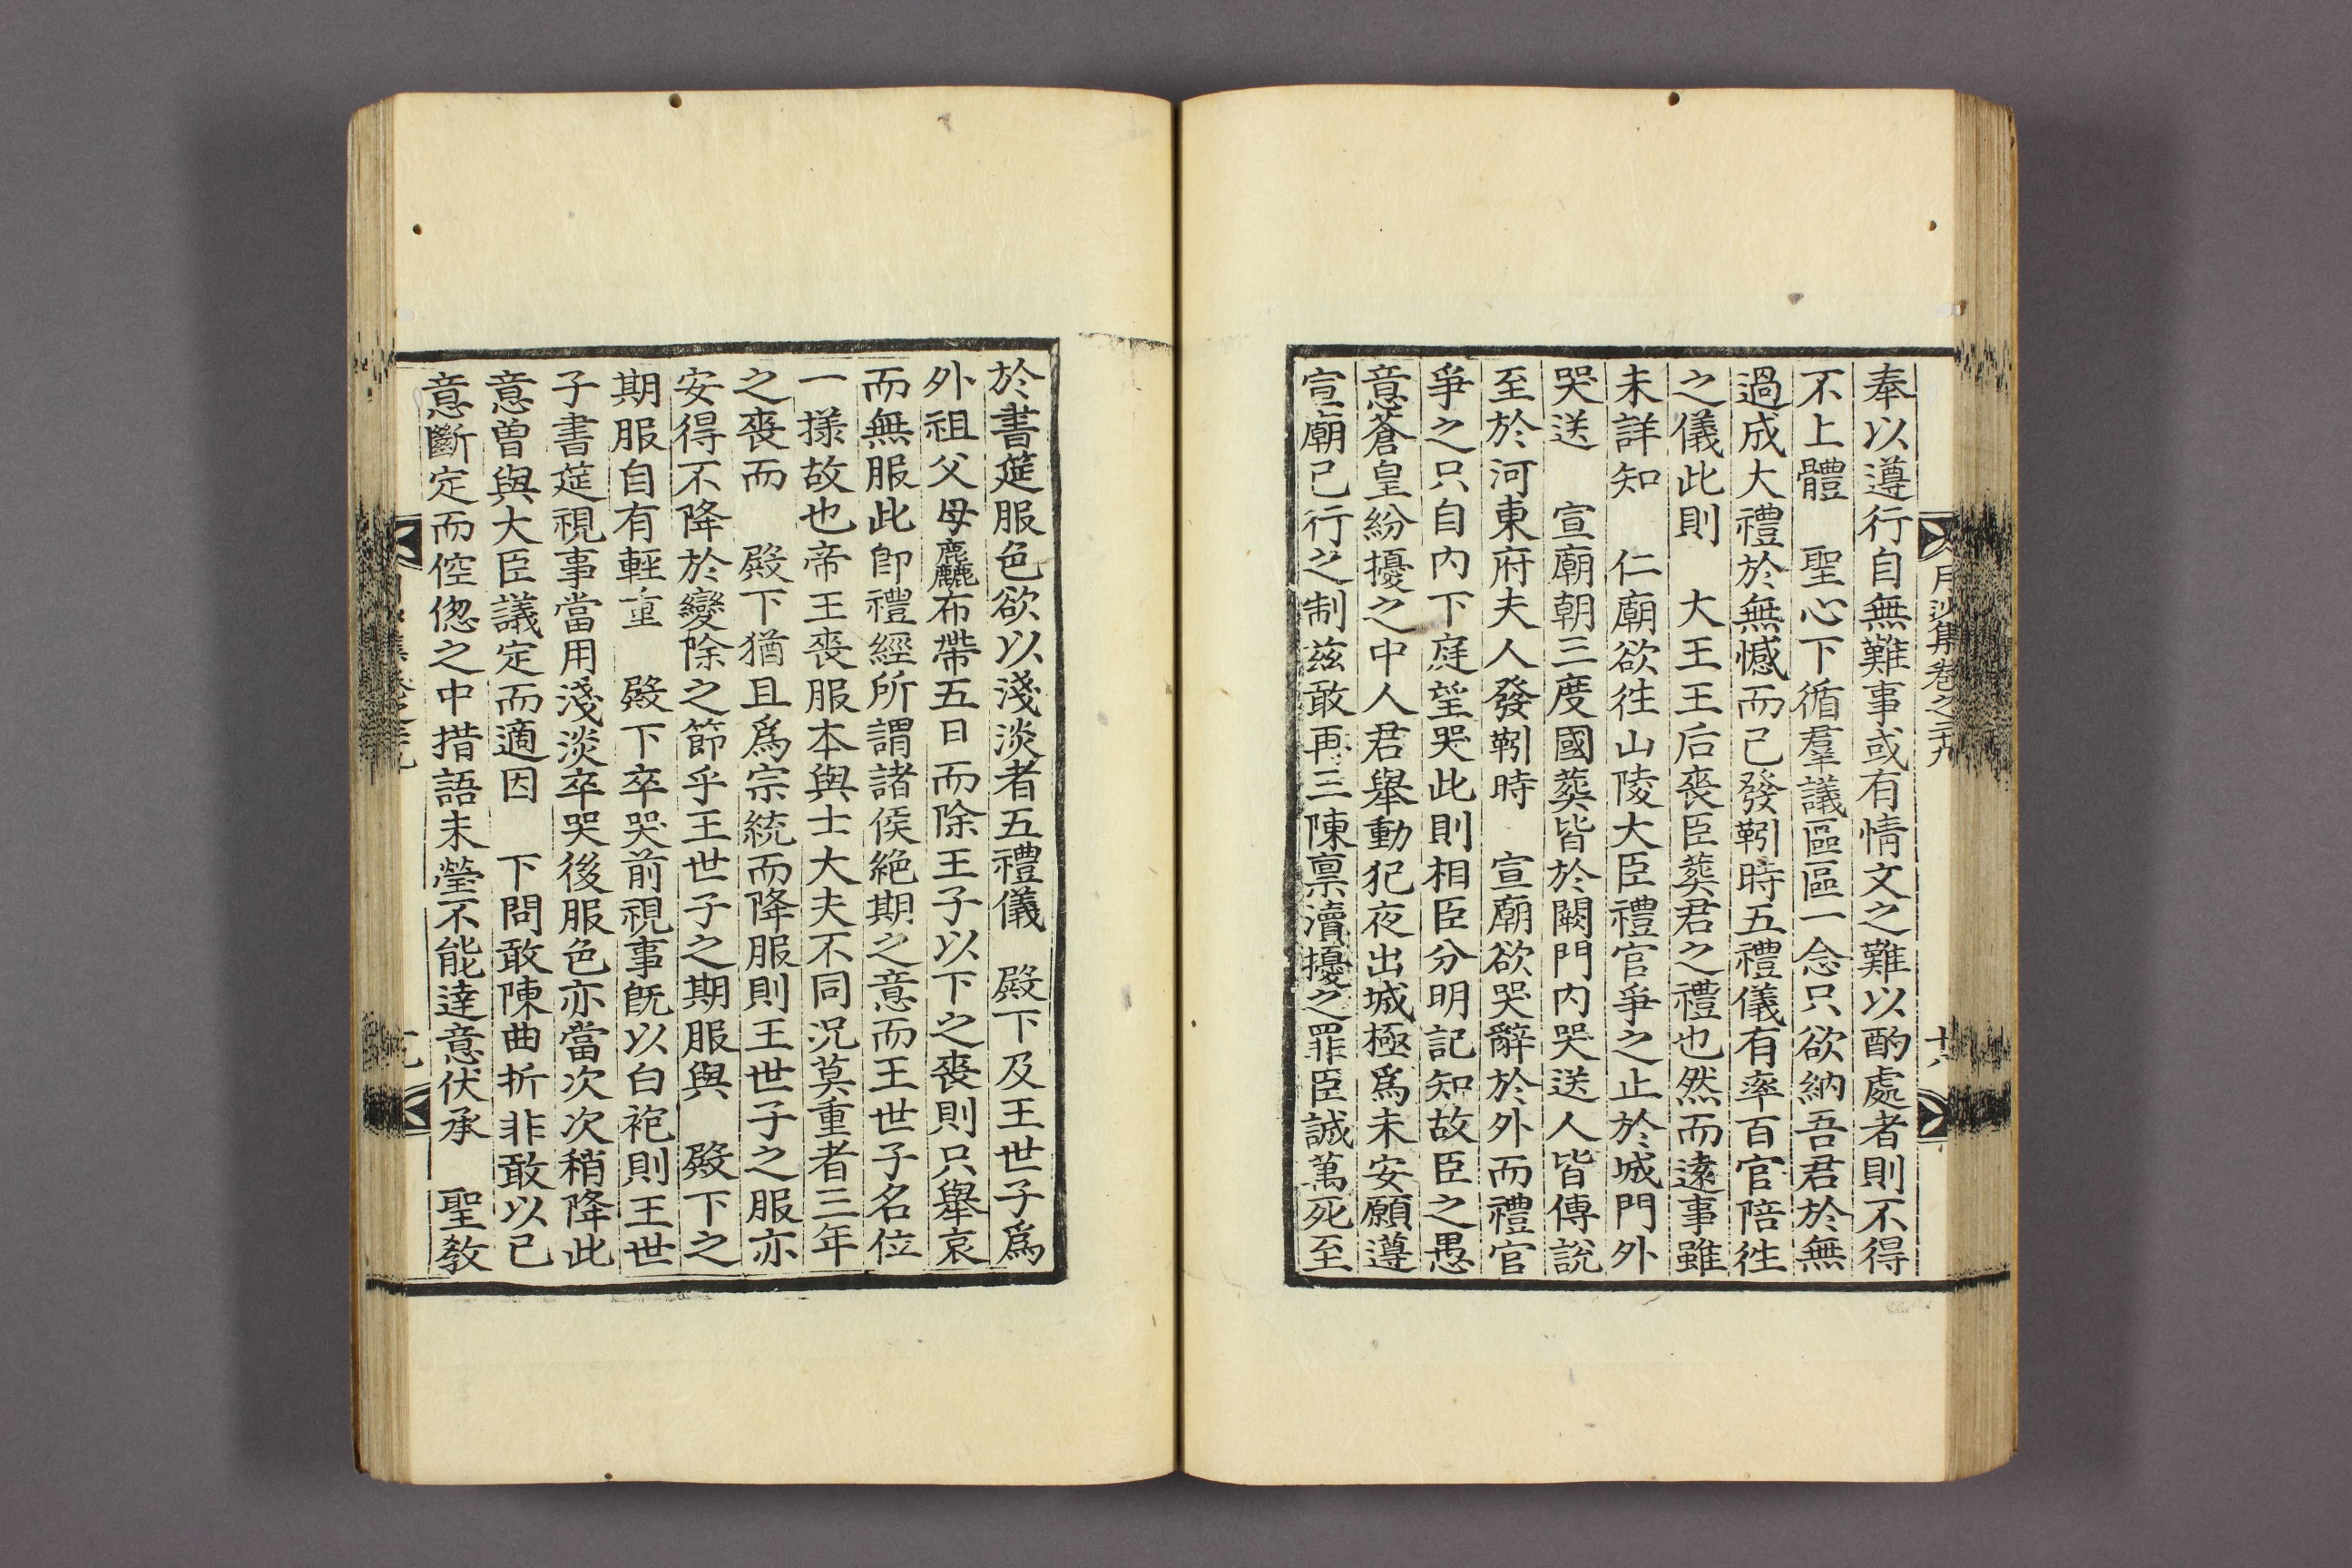 月沙集卷之三十九
十八
奉以遵行自無難事或有情文之難以酌處者則不得
不上體　聖心下循羣議區區一念只欲納吾君於無
過成大禮於無憾而已發靷時五禮儀有率百官陪往
之儀此則　大王王后喪臣葬君之禮也然而遠事雖
未詳知　仁廟欲往山陵大臣禮官爭之止於城門外
哭送　宣廟朝三度國葬皆於闕門內哭送人皆傳說
至於河東府夫人發靷時　宣廟欲哭辭於外而禮官
爭之只自內下庭望哭此則相臣分明記知故臣之愚
意蒼皇紛擾之中人君舉動犯夜出城極爲未安願遵
宣廟已行之制茲敢再三陳稟瀆擾之罪臣誠萬死至
於書筵服色欲以淺淡者五禮儀　殿下及王世子爲
外祖父母麁麤布帶五日而除王子以下之喪則只舉哀
而無服此卽禮經所謂諸侯絶期之意而王世子名位
一㨾故也帝王喪服本與士大夫不同況莫重者三年
之喪而　殿下猶且爲宗統而降服則王世子之服亦
安得不降於變除之節乎王世子之期服與　殿下之
期服自有輕重　殿下卒哭前視事旣以白袍則王世
子書筵視事當用淺淡卒哭後服色亦當次次稍降此
意曾與大臣議定而適因　下問敢陳曲折非敢以己
意斷定而倥偬之中措語未瑩不能達意伏承　聖敎